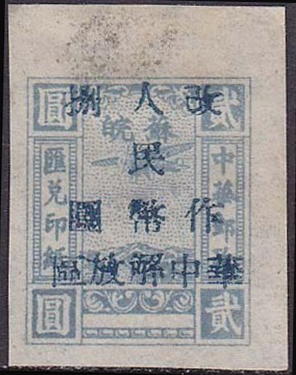 改作
人民幣
捌圓
華中解放區
蘇皖
貳圓
中華郵
匯兌印紙
貳圓